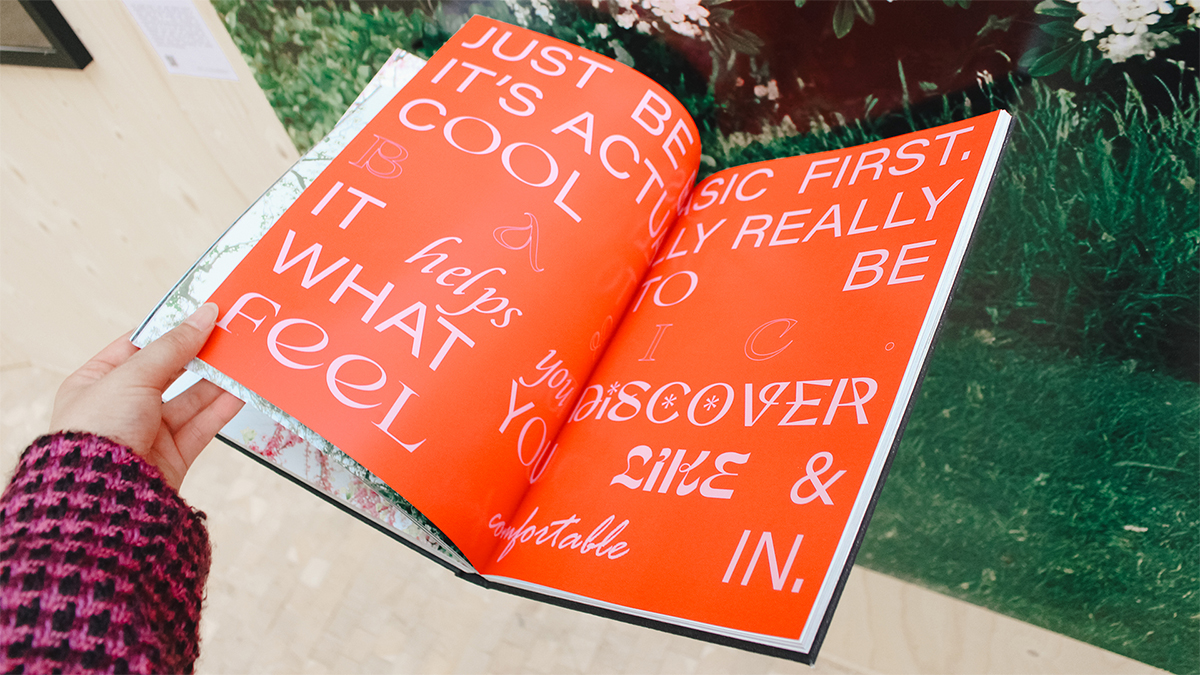 JUST BE BASIC FIRST.
IT'S ACTUALLY REALLY
COOL TO BE
B a s I C .
IT helps you DiSCOVER
WHAT YOU LiKE &
FeeL comfortable IN.